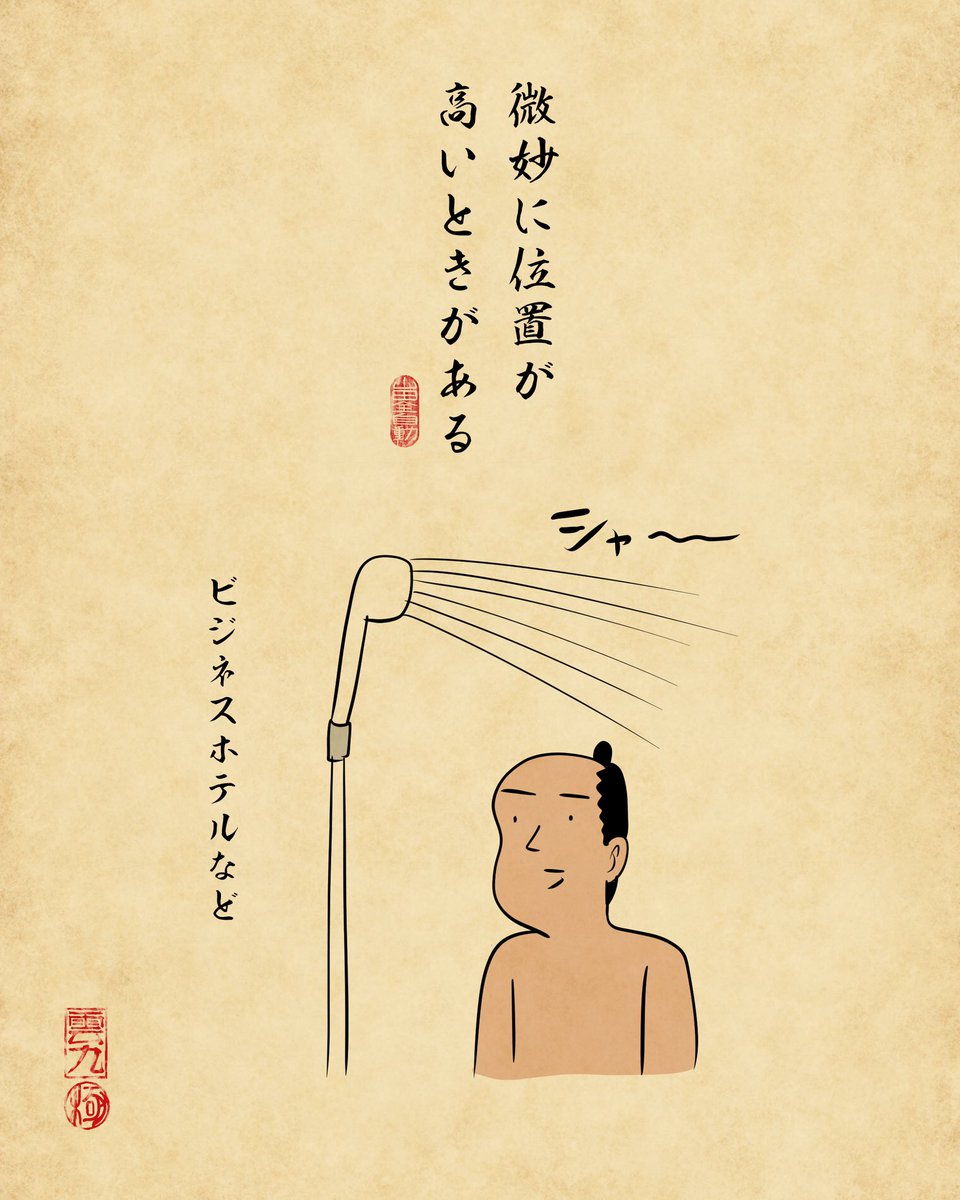 微妙に位置が
高いときがある
シャ〜
ビジネスホテルなど